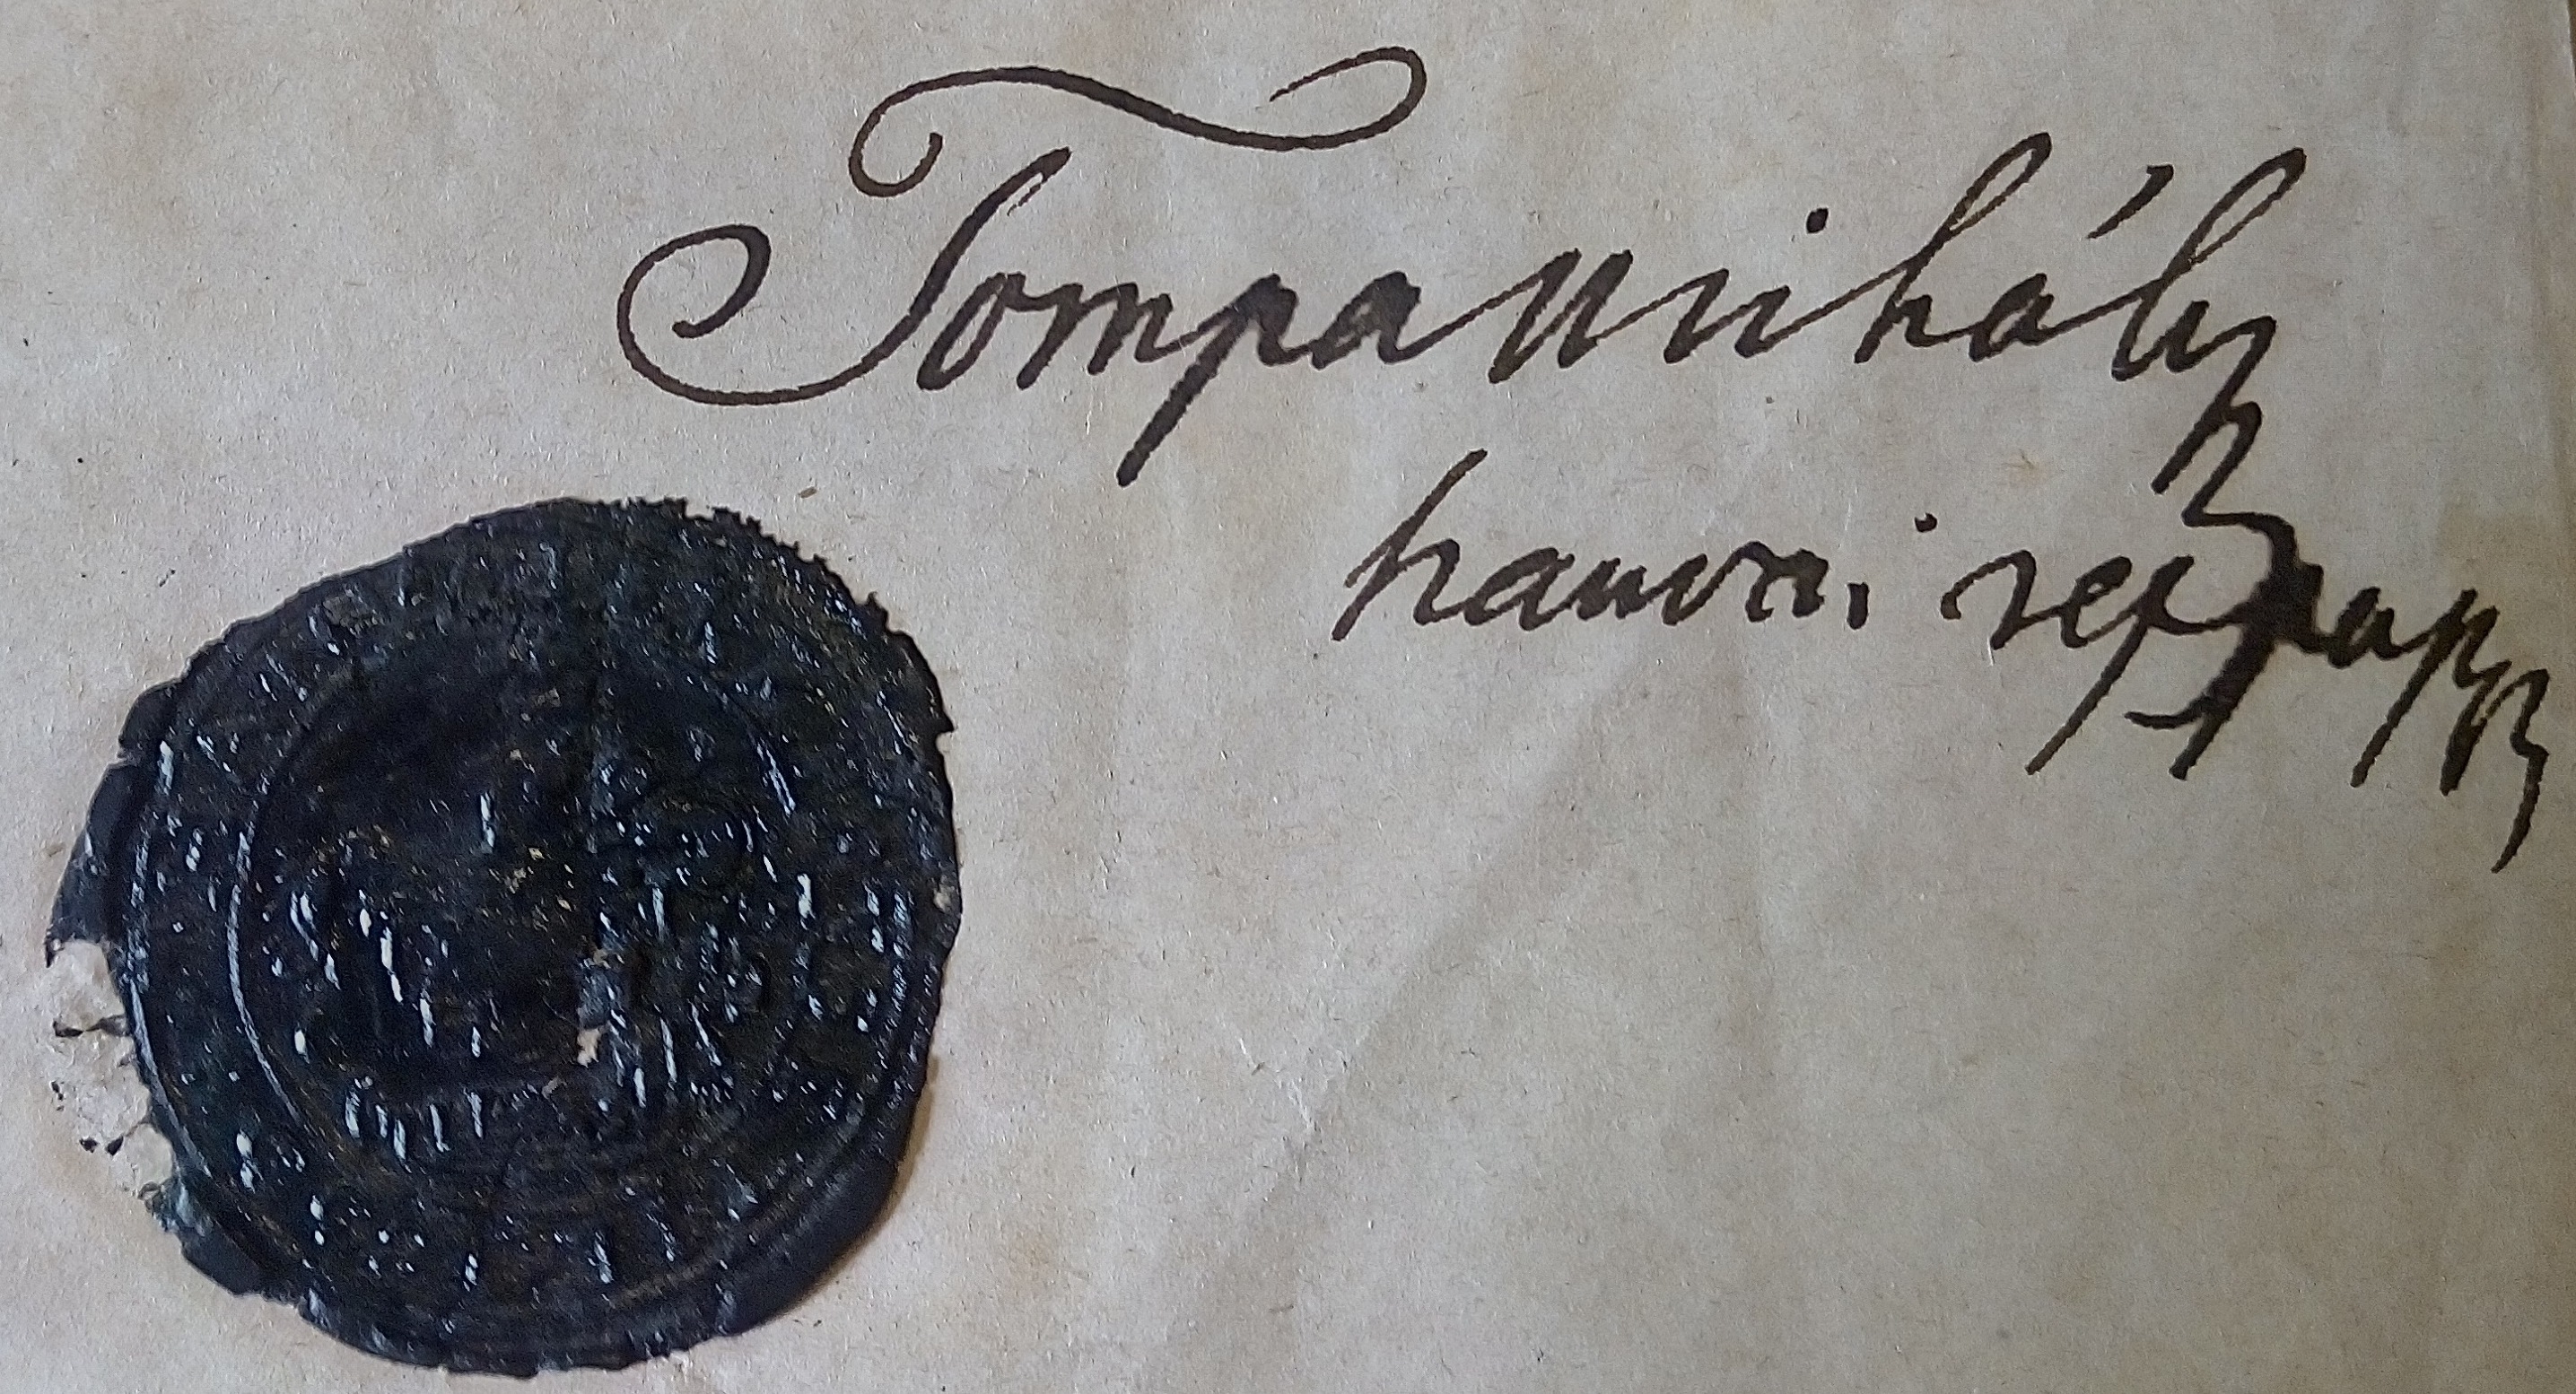 Tompa Mihály
hamvai ref pap